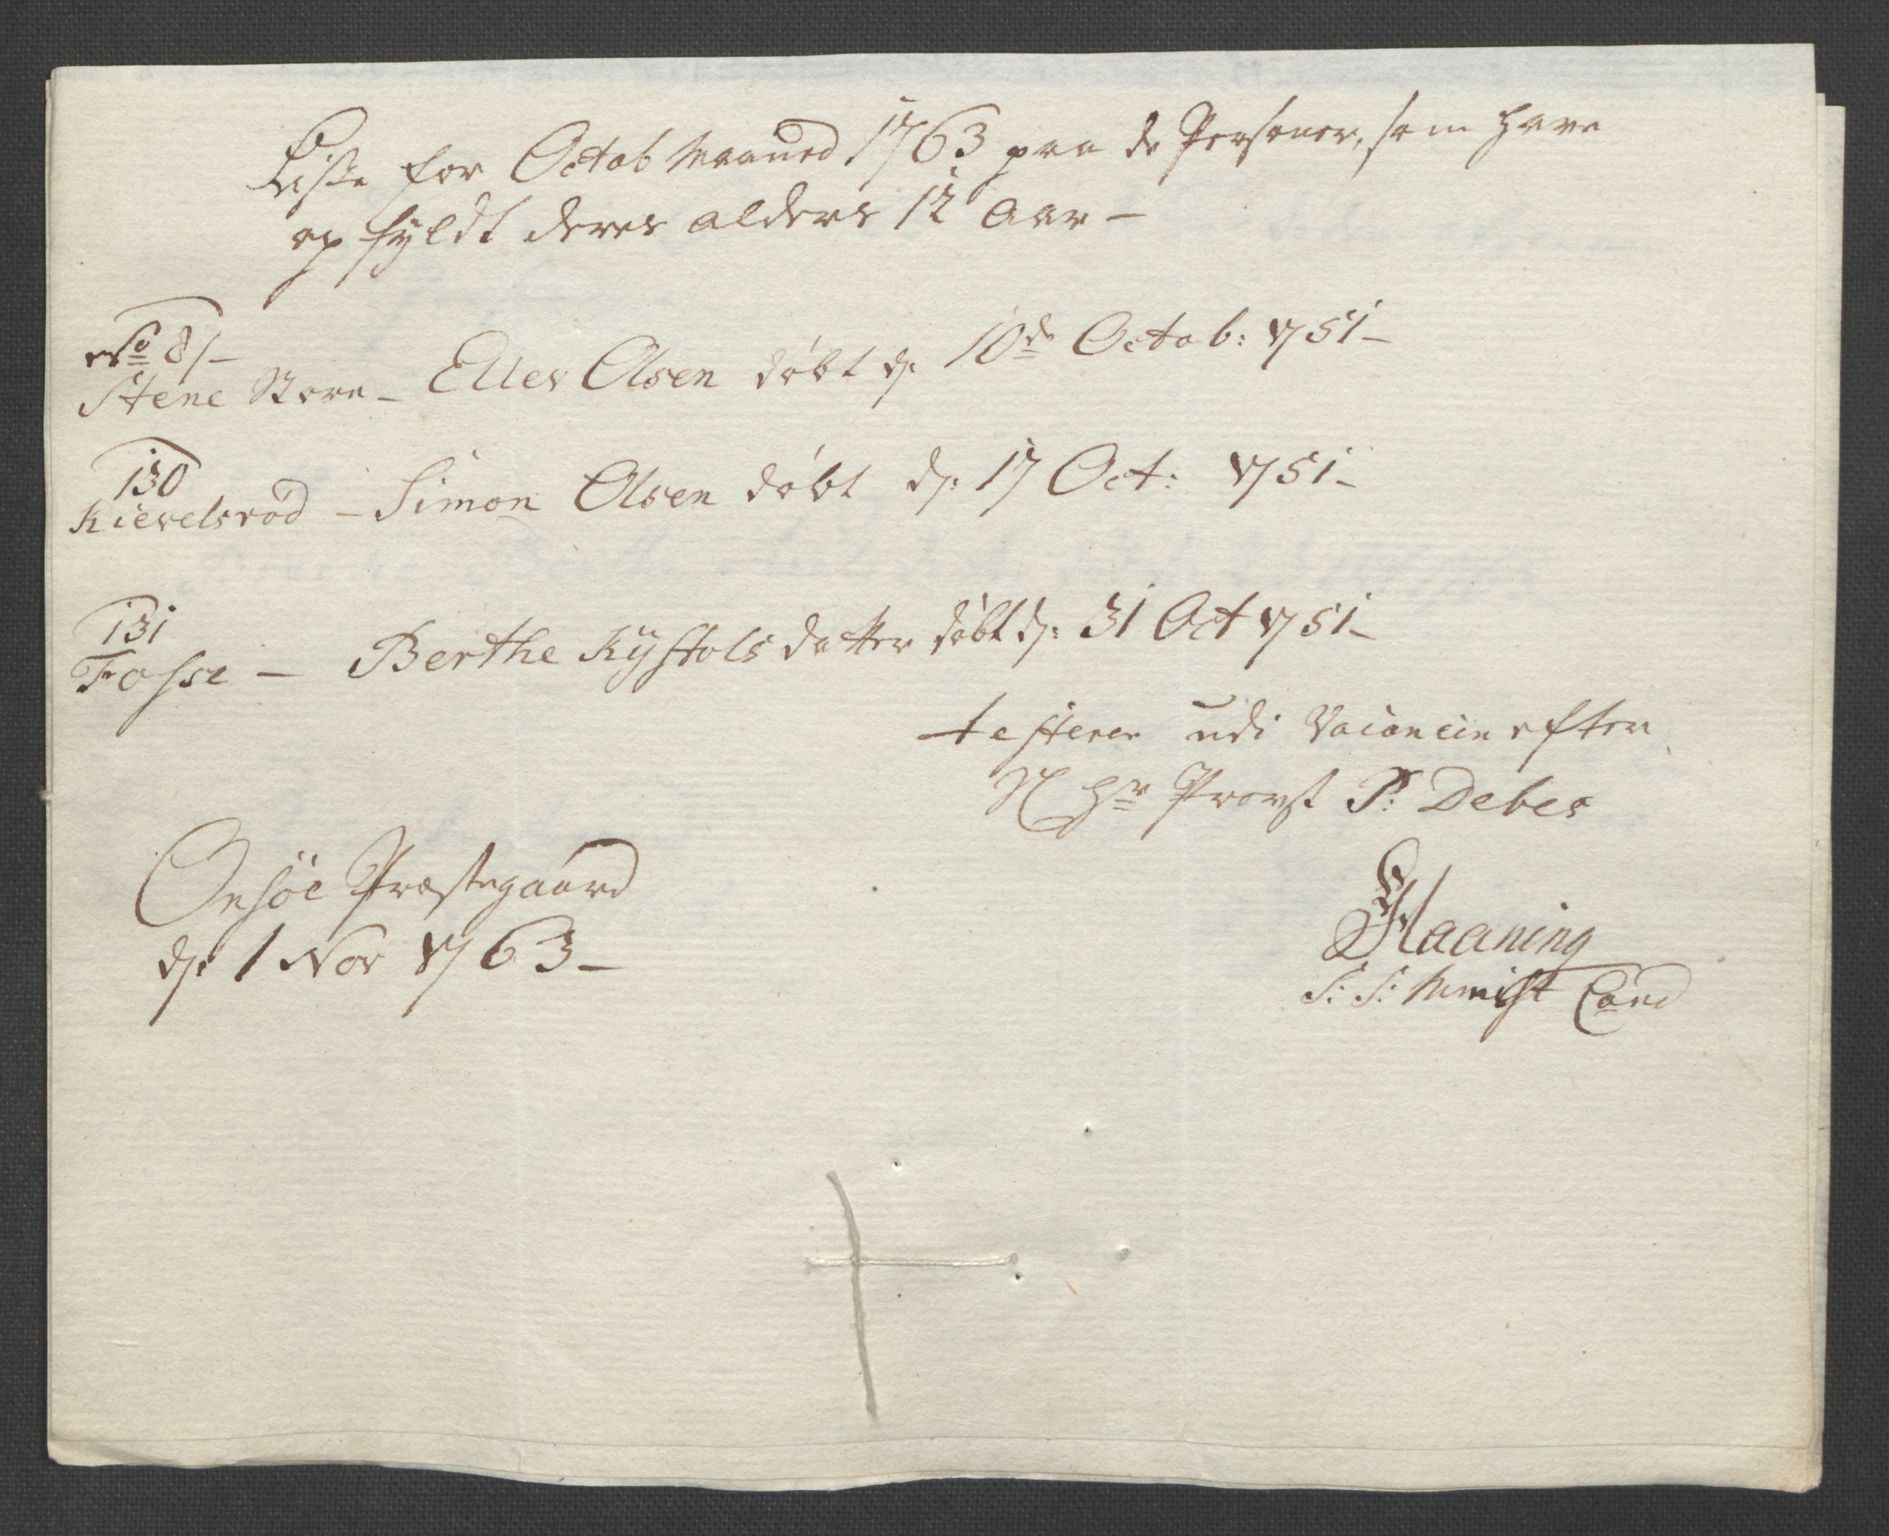 Liste for Octob Maaned 1763 paa de Personer, som have
opfyldt deres alders 12 Aar –
No 81 –
Stene Store – Elles Olsen døbt d. 10de Octob: 1751 –
130
Kievelsrød – Simon Olsen døbt d: 17 Oct: 1751 –
131
Fosse – Berthe Kystols datter døbt d: 31 Oct 1751 –
testerer udi Vacancien efter
Hr Provst P: Debes
Onsøe Præstegaard
d: 1 Nov 1763 –
Haaning
S: S: Minist Cand